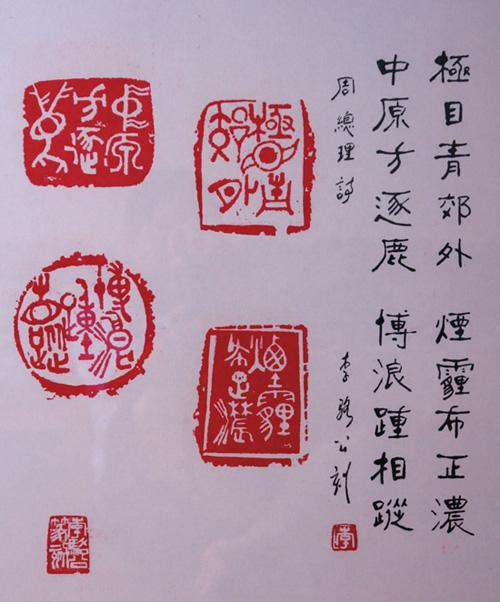 極目青郊外 煙霾布正濃
中原方逐鹿 博浪踵相蹤
周總理詩 李駱公刻
李
極目青郊外
煙霾布正濃
中原方逐鹿
博浪踵相蹤
李駱公篆刻